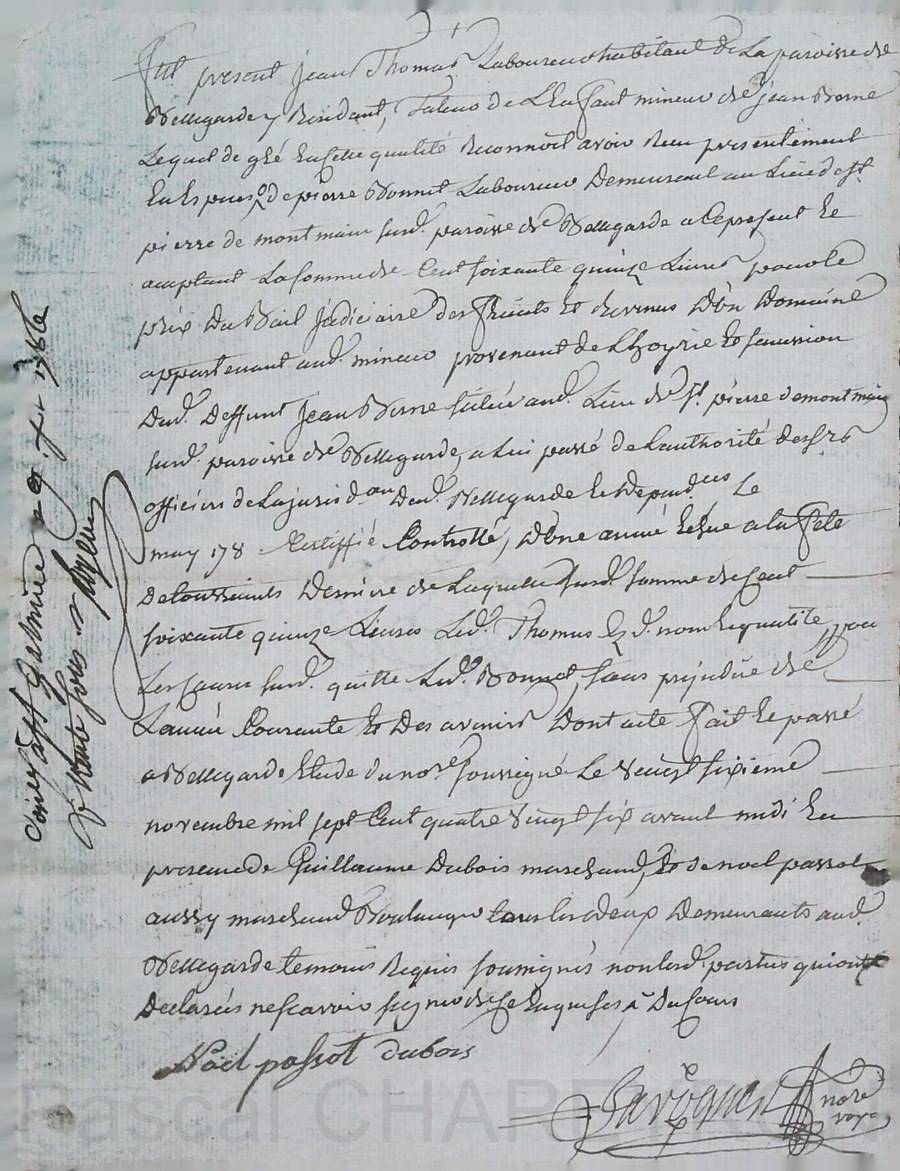 Fut present jean Thomas Laboureur habitant de La paroisse de
Bellegarde y Residant, Tuteur de L'Enfant mineur de jean Berne
Lequel de gré En cette qualité Reconnoit avoir Reçu presentement
En Especes de pierre Bonnet Laboureur Demeurant au Lieu de st
pierre de montmain susd. paroisse de Bellegarde a Ce present Et
acceptant La somme de Cent soixante quinze Livres pour le
prix Du Bail judiciaire des fruits Et Revenus D'un Domaine
appartenant aud. mineur provenant de L'hoyrie Et succession
Dud. Deffunt jean Berne situé aud. Lieu de st. pierre de montmain
susd. paroisse de Bellegarde, a Lui passé de L'authorité des srs
officiers de La jurisdon Dud. Bellegarde Et Dependces Le
may 178 Certiffié Controllé, D'une année Echue a La fete
De toussaints Derniere de Laquelle susd. somme de Cent
soixante quinze Livres Led. Thomas Esd. nom Et qualité
quitte Led. Bonnet, sans prejudice de
L'année Courante Et Des avenirs Dont acte fait Et passé
a Bellegarde Etude du nore. soussigné Le vingt sixieme
novembre mil sept Cent quatre vingt six avant midi En
presence de Guillaume Dubois marchand, Et de noel passot
aussy marchand Boulanger tous Les deux Demeurants aud.
Bellegarde temoins Requis soussignés non Lesd. parties qui ont
Declarés ne scavoir signer de Ce Enquises Du Cours
Noël passot dubois
nore
royal
Galmier 1786